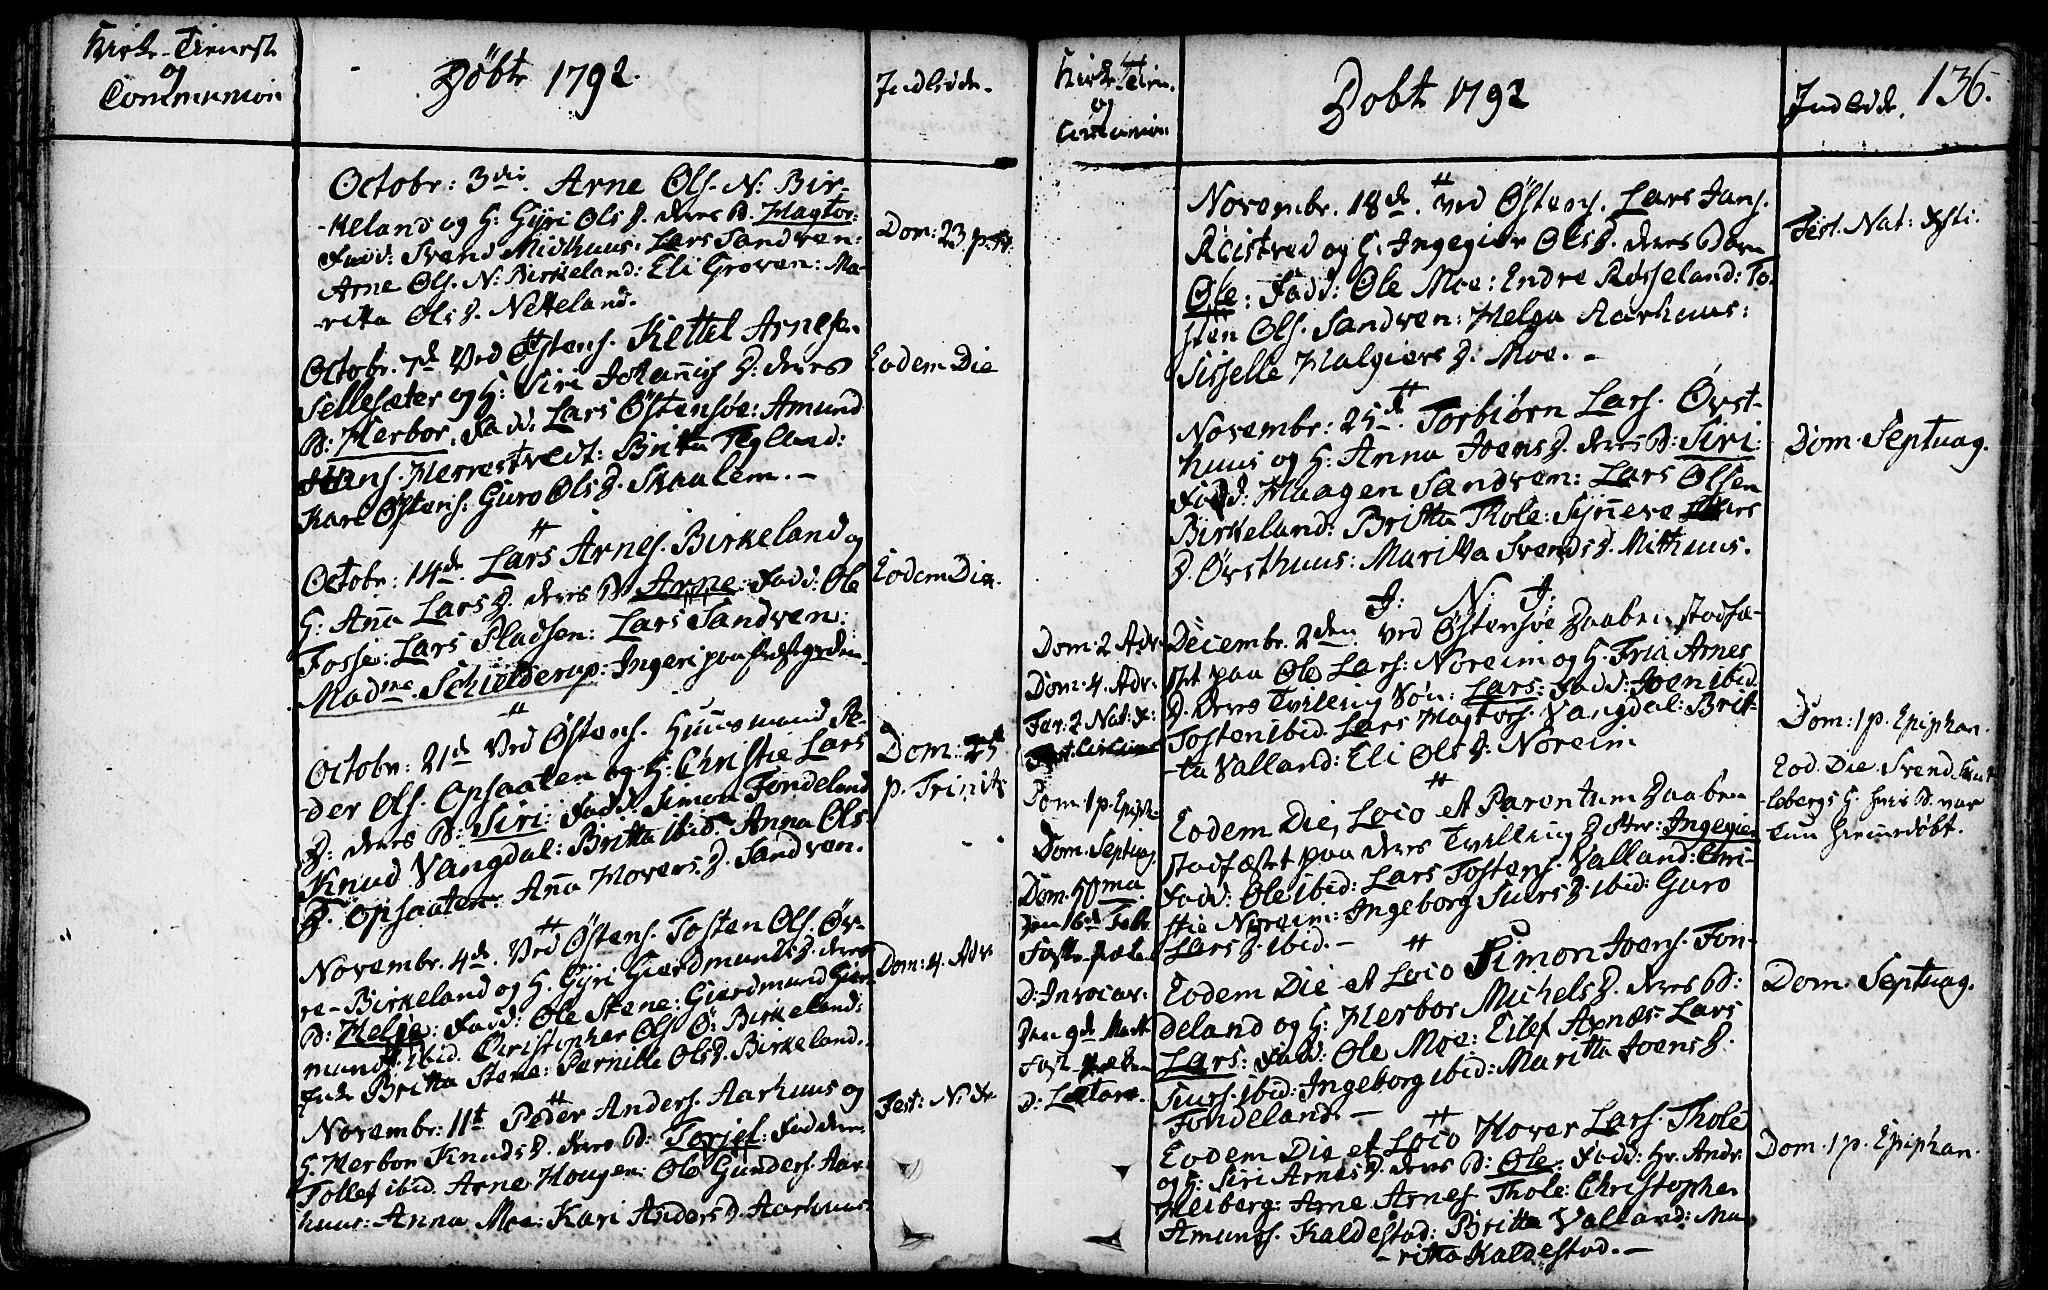 Kirke-Tienest
og
Communion
Döbte 1792.
Indledde.
Octobr: 3die. Arne Ols. N: Bir-
-keland og H: Gÿri OlsD. deres B. Hagtor:
Fadd: Svend Midthuus: Lars Sandven:
Arne Ols. N: Birkeland: Eli Groven: Ma-
-ritta OlsD. Netteland.
Dom: 23 p. Tr.
Octobr. 7de Ved Østens. Kettel Arnesen
Sellesæter og H: Siri Johannis D: deres
B: Herbor. Fadd: Lars Østensøe: Amund
Hans. Herrestvedt: Britta Tegland:
Kari Østens: Guro OlsD. Skaalem. -
Eodem Die
Octobr: 14de. Lars Arnes. Birkeland og
H: Anna LarsD. deres B Arne: Fadd: Ole
Fosse: Lars Pladsen: Lars Sandven:
Madme. Schielderup: Ingeri paa Præstgrden.
Eodem Die.
Octobr: 21de Ved Østens. Huusmand Pe-
-der Ols. Opsaaten og H: Christie Lars
D: deres B: Siri: Fadd: Simon Fondeland
Knud Vangdal: Britta ibid: Anna Ols
D. Opsaaten: Anna HoversD. Sandven.
Dom: 25
p. Trinit:
Novembr. 4de. Ved Østens. Tosten Ols. Øv-
re-Birkeland og H. Gÿri GiermundsD. deres
B: Helje: Fadd: Ole Stene: Giermund Gier-
munds. ibid. Christopher Ols Ø: Birkeland:
Britta Stene: Pernille OlsD. Birkeland.
Dom: 4. Adv.
Novembr: 11te Peder Anders. Aarhuus og
H. Herbor KnudsD. deres B: Torjef: Faddere:
Tollef ibid. Arne Hougen: Ole Gunders. Aar-
huus: Anna Moe: Kari AndersD. Aarhuus.
Fest: N: Xr.
Kirke Tien.
og
Communion
Dobt 1792
Indledde.
136.
Novembr. 18de. ved Østens. Lars Jans.
Røistved og H: Ingegier OlsD. deres Barn
Ole: Fadd: Ole Moe: Endre Røsseland: To-
sten Ols. Sandven: Helga Aarhuus:
Sisselle Halgiers D: Moe. -
Fest. Nat: Xsti.
Novembr: 25de. Torbiørn Lars. Øvst-
huus og H: Anna JoensD. deres B: Siri:
Fadd: Haagen Sandven: Lars Olsen
Birkeland: Britta Thole: Synneve Lars
D. Øvsthuus: Maritta SvendsD. Mitthuus.
Dom. Septuag.
J: N: J:
Decembr. 2den ved Østensøe Daaben stadfæ-
stet paa Ole Lars: Noreim og H. Tria Arnes
D. deres Tvilling Søn: Lars: Fadd: Joen ibid.
Tosten ibid. Lars Hagtors. Vangdal: Brit-
-ta Valland: Eli OlsD: Noreim
Dom: 1 p. Epiphan.
Eodem Die, Loco et Parentum Daaben
stadfæstet paa deres Tvilling Dotter: Ingegier
Fadd: Ole ibid: Lars Tostens. Valland: Chri-
stie Noreim: Ingeborg SiursD. ibid: Guro
LarsD. ibid. -
Eod. Die Svend
H. hvis B. var
hiemedøbt.
Eodem Die et Loco Simon Joens. Fon-
deland og H: Herbor MichelsD. deres B:
Lars: Fadd: Ole Moe: Eilef Axnæs: Lars
Siurs. ibid: Ingeborg ibid: Maritta JoensD.
Fondeland. -
Dom. Septuag.
Eodem Die et Loco Hover Lars. Thole
og H: Siri ArnesD. deres B: Ole. Fadd: Hr. Andr.
Heiberg: Arne Arnes Thole: Christopher
Amunds. Kaldestad: Britta Valland: Ma-
-ritta Kaldestad. -
Dom. 1 p. Epiphan.
Dom: 2 Adv.
Dom: 4. Adv.
Fer: 2 Nat: X:
Dom. 1 p. Epiph:
Dom. Septuag.
Dom: 50ma
Den 16de Febr.
Faste-præk.
D: Invocav.
Den 9de Mart.
Fast-præken
D: Lætare.